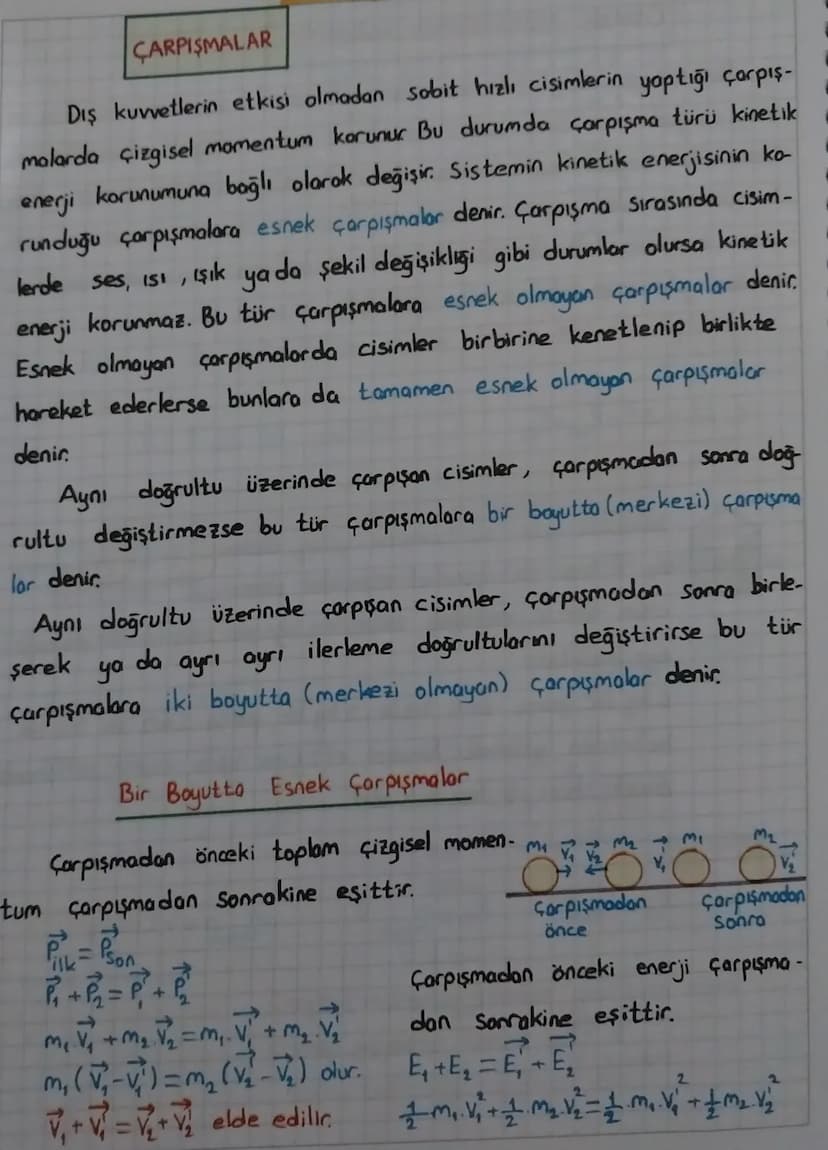 ÇARPIŞMALAR
Dış kuvvetlerin etkisi olmadan sabit hızlı cisimlerin yaptığı çarpış-
malarda çizgisel momentum korunur Bu durumda çarpışma türü kinetik
enerji korunumuna bağlı olarak değişir. Sistemin kinetik enerjisinin ko-
runduğu çarpışmalara esnek çarpışmalar denir. Çarpışma sırasında cisim-
lerde ses, ısı, ışık ya da şekil değişikliği gibi durumlar olursa kinetik
enerji korunmaz. Bu tür çarpışmalara esnek olmayan çarpışmalar denir.
Esnek olmayan çarpışmalarda cisimler birbirine kenetlenip birlikte
hareket ederlerse bunlara da tamamen esnek olmayan çarpışmalar
denir.
Aynı doğrultu üzerinde çarpışan cisimler, çarpışmadan sonra doğ-
rultu değiştirmezse bu tür çarpışmalara bir boyutta (merkezi) çarpışma
lar denir.
Aynı doğrultu üzerinde çarpışan cisimler, çarpışmadan sonra birle-
şerek ya da ayrı ayrı ilerleme doğrultularını değiştirirse bu tür
çarpışmalara iki boyutta (merkezi olmayan) çarpışmalar denir.
Bir Boyutta Esnek Çarpışmalar
Çarpışmadan önceki toplam çizgisel momen-
tum çarpışmadan sonrakine eşittir.
P⃗ilk = P⃗son
P⃗₁ + P⃗₂ = P⃗₁' + P⃗₂'
m₁ V⃗₁ + m₂ V⃗₂ = m₁. V⃗₁' + m₂. V⃗₂'
m₁ (V⃗₁ - V⃗₁') = m₂ (V⃗₂' - V⃗₂) olur.
V⃗₁ + V⃗₁' = V⃗₂ + V⃗₂' elde edilir.
m₁ V⃗₁ V⃗₂ m₂ V⃗₁' m₁ m₂ V⃗₂'
Çarpışmadan önce
Çarpışmadan sonra
Çarpışmadan önceki enerji çarpışma-
dan sonrakine eşittir.
E₁ + E₂ = E⃗₁' + E⃗₂'
1/2 m₁. V₁² + 1/2 . m₂. V₂² = 1/2 . m₁. V₁'² + 1/2 m₂. V₂'²